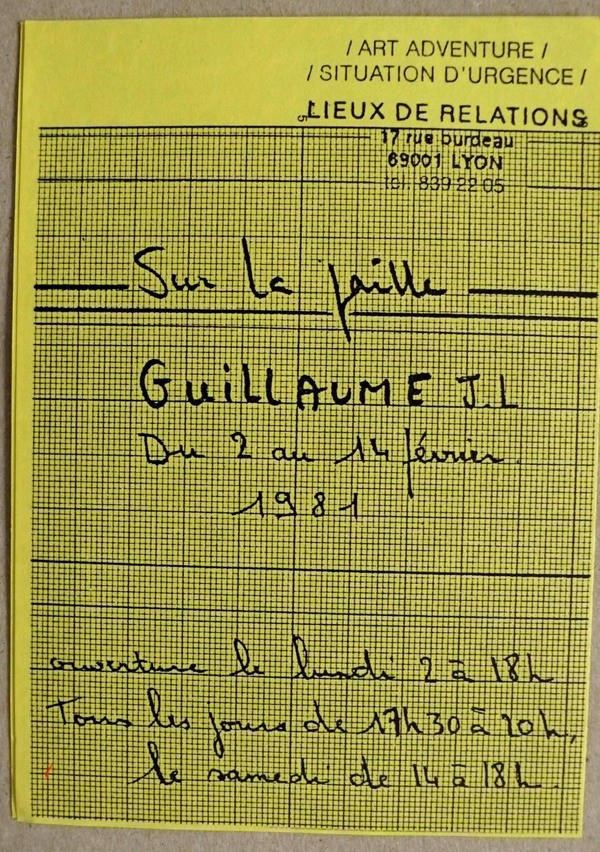 / ART ADVENTURE /
/ SITUATION D'URGENCE /
LIEUX DE RELATIONS
17 rue burdeau
69001 LYON
tel. 839 22 05
Sur la faille
GUiLLAUME J.L
Du 2 au 14 février.
1981
ouverture le lundi 2 à 18h
Tous les jours de 17h30 à 20h,
le samedi de 14 à 18h.